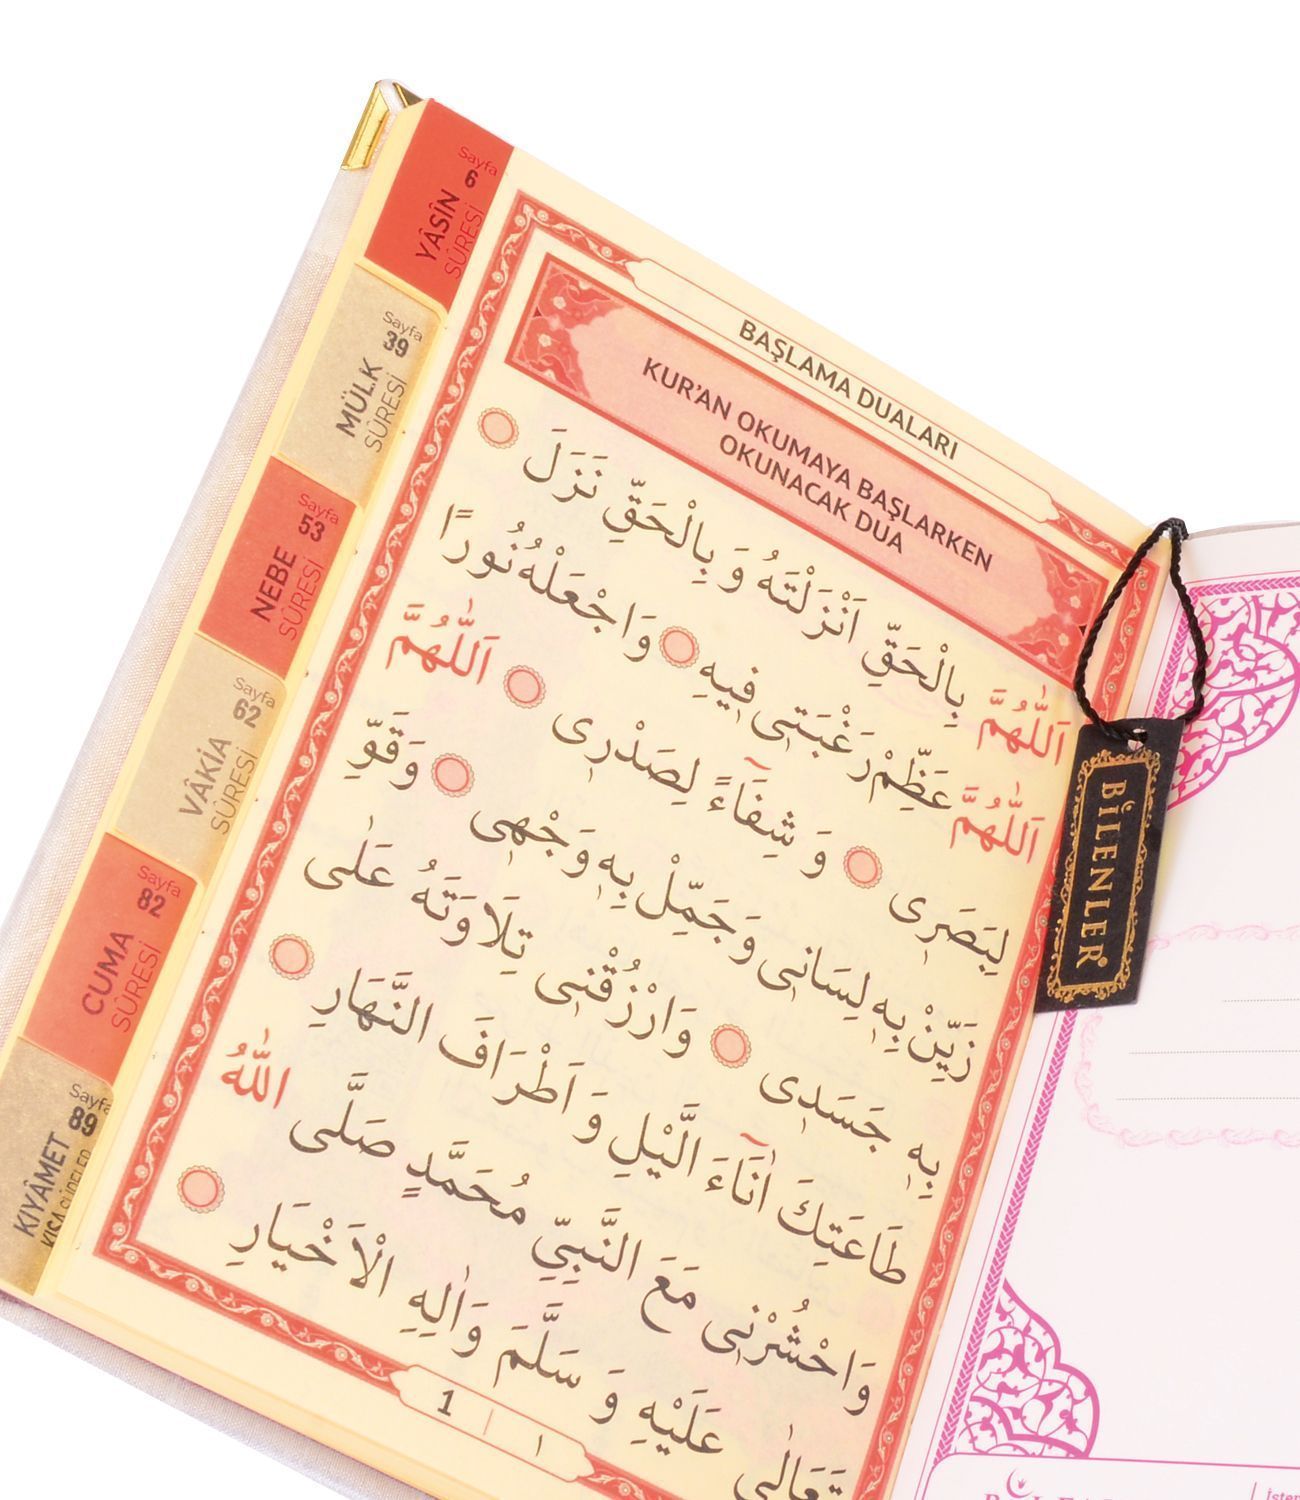 BAŞLAMA DUALARI
KUR'AN OKUMAYA BAŞLARKEN
OKUNACAK DUA
اَللّٰهُمَّ بِالْحَقِّ اَنْزَلْتَهُ وَ بِالْحَقِّ نَزَلَ
اَللّٰهُمَّ عَظِّمْ رَغْبَتٖى فٖيهِ وَاجْعَلْهُ نُورًا
لِبَصَرٖى وَ شِفَٓاءً لِصَدْرٖى اَللّٰهُمَّ
زَيِّنْ بِهٖ لِسَانٖى وَجَمِّلْ بِهٖ وَجْهٖى وَقَوِّ
بِهٖ جَسَدٖى وَارْزُقْنٖى تِلَاوَتَهُ عَلٰى
طَاعَتِكَ اٰنَٓاءَ الَّيْلِ وَ اَطْرَافَ النَّهَارِ
وَاحْشُرْنٖى مَعَ النَّبِيِّ مُحَمَّدٍ صَلَّى اللّٰهُ
تَعَالٰى عَلَيْهِ وَ سَلَّمَ وَاٰلِهِ الْاَخْيَارِ
1 | ١
Sayfa
6
YÂSÎN
SÛRESİ
Sayfa
39
MÜLK
SÛRESİ
Sayfa
53
NEBE
SÛRESİ
Sayfa
62
VÂKİA
SÛRESİ
Sayfa
82
CUMA
SÛRESİ
Sayfa
89
KIYÂMET
KISA SÛRELER
BİLENLER